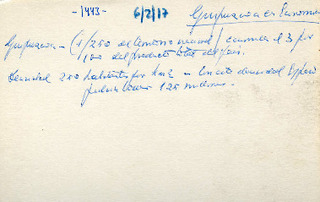 -1443- 6/2/17 Guipuzcoa es
Guipuzcoa - (1/250 del territorio nacional) el 3 por
100 del producto total del país.
Densidad 200 habitantes por km2 - Con esta densidad España
podría tener 125 millones.